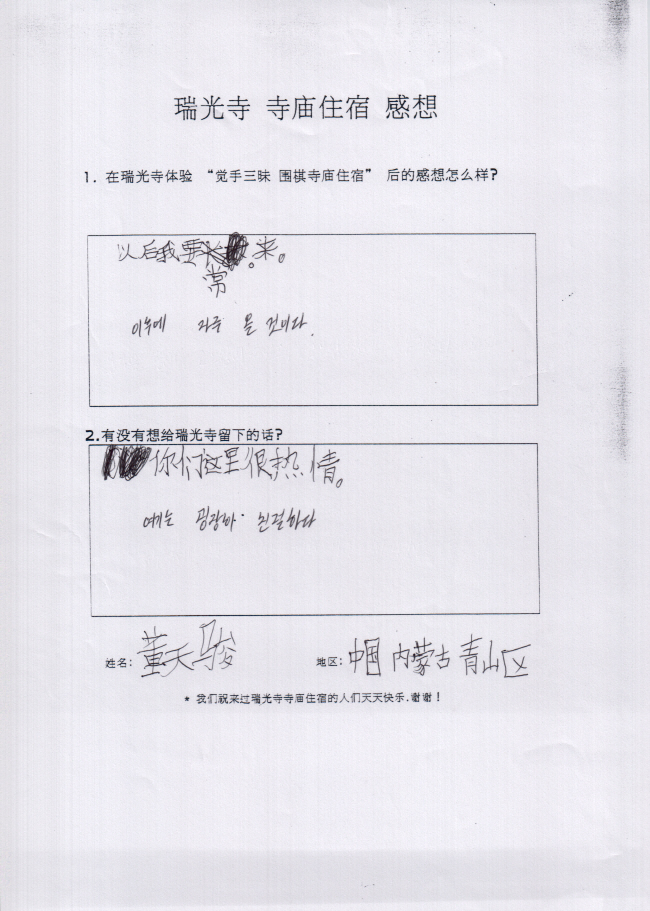 瑞光寺 寺庙住宿 感想
1. 在瑞光寺体验 “觉手三昧 围棋寺庙住宿” 后的感想怎么样?
以后我要常来。
이후에 자주 올 것이다.
2.有没有想给瑞光寺留下的话?
你们这里很热情。
여기는 굉장히 친절하다
姓名: 董天骏
地区: 中国 内蒙古 青山区
* 我们祝来过瑞光寺寺庙住宿的人们天天快乐.谢谢!